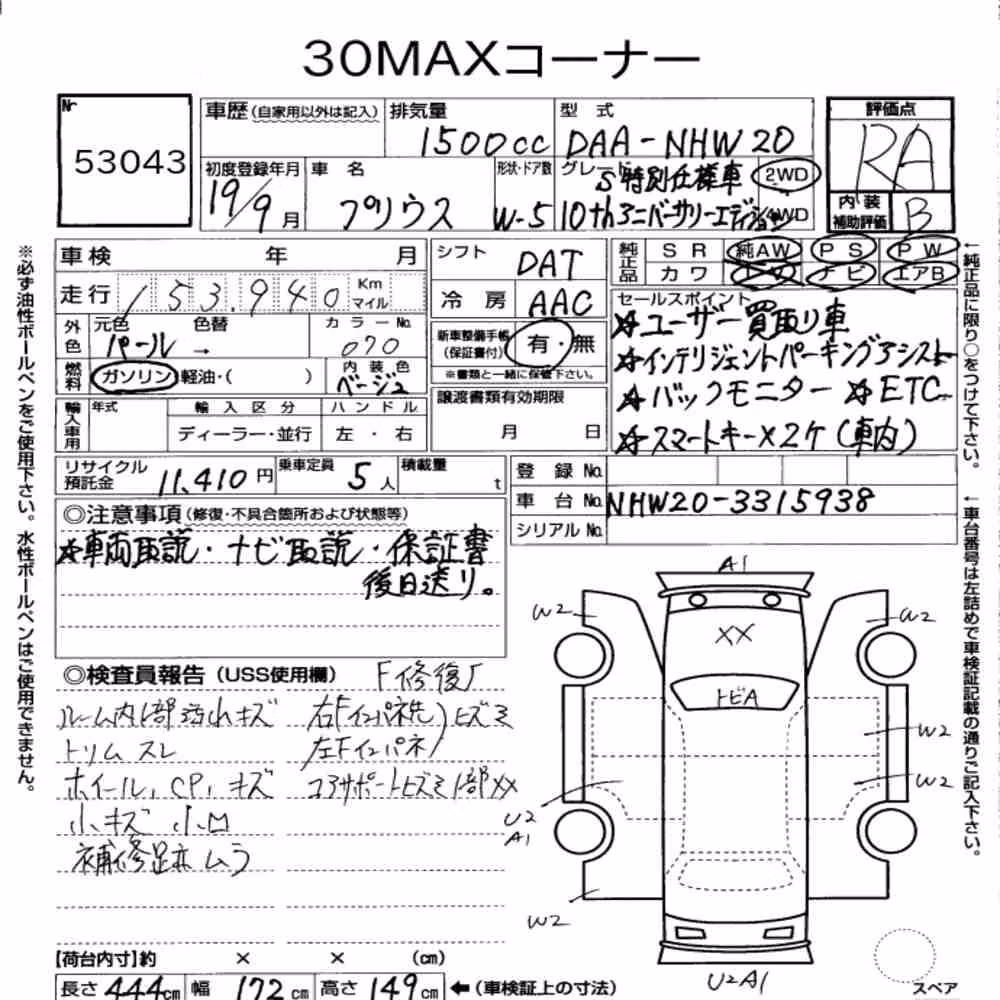 30MAXコーナー
Nr 53043
車歴(自家用以外は記入) 排気量 1500cc 型式 DAA-NHW20 評価点 RA
初度登録年月 19/9月 車名 プリウス 形状・ドア数 W-5 グレード S特別仕様車 10thアニバーサリーエディション 2WD 4WD
内装補助評価 B
車検 年 月
シフト DAT
純正品 SR 純AW PS PW
カワ TV ナビ エアB
走行 153,940 Km マイル
冷房 AAC
外色 元色 パール 色替 → カラーNo. 070
新車整備手帳(保証書付) 有・無
※書類と一緒に保管下さい。
燃料 ガソリン 軽油・( ) 内装色 ベージュ
輸入車用 年式 輸入区分 ディーラー・並行 ハンドル 左・右
譲渡書類有効期限 月 日
セールスポイント
☆ユーザー買取り車
☆インテリジェントパーキングアシスト
☆バックモニター ☆ETC
☆スマートキー×2ケ(車内)
リサイクル預託金 11,410円 乗車定員 5人 積載量 t
登録No.
車台No. NHW20-3315938
シリアルNo.
◎注意事項(修復・不具合箇所および状態等)
☆車両取説・ナビ取説・保証書
後日送り。
◎検査員報告(USS使用欄) F修復
ルーム内1部汚れキズ
トリムスレ
ホイール,CP,キズ
小キズ 小凹
補修跡ムラ
右Fインパネ先)ヒズミ
左Fインパネ)
コアサポートヒズミ1部XX
A1
W2
W2
XX
トビA
W2
W2
U2
A1
W2
U2A1
スペア
【荷台内寸】約 × × (cm)
長さ 444cm 幅 172cm 高さ 149cm ←(車検証上の寸法)
※必ず油性ボールペンをご使用下さい。水性ボールペンはご使用できません。
←純正品に限り○をつけて下さい。
←車台番号は左詰めで車検証記載の通りご記入下さい。